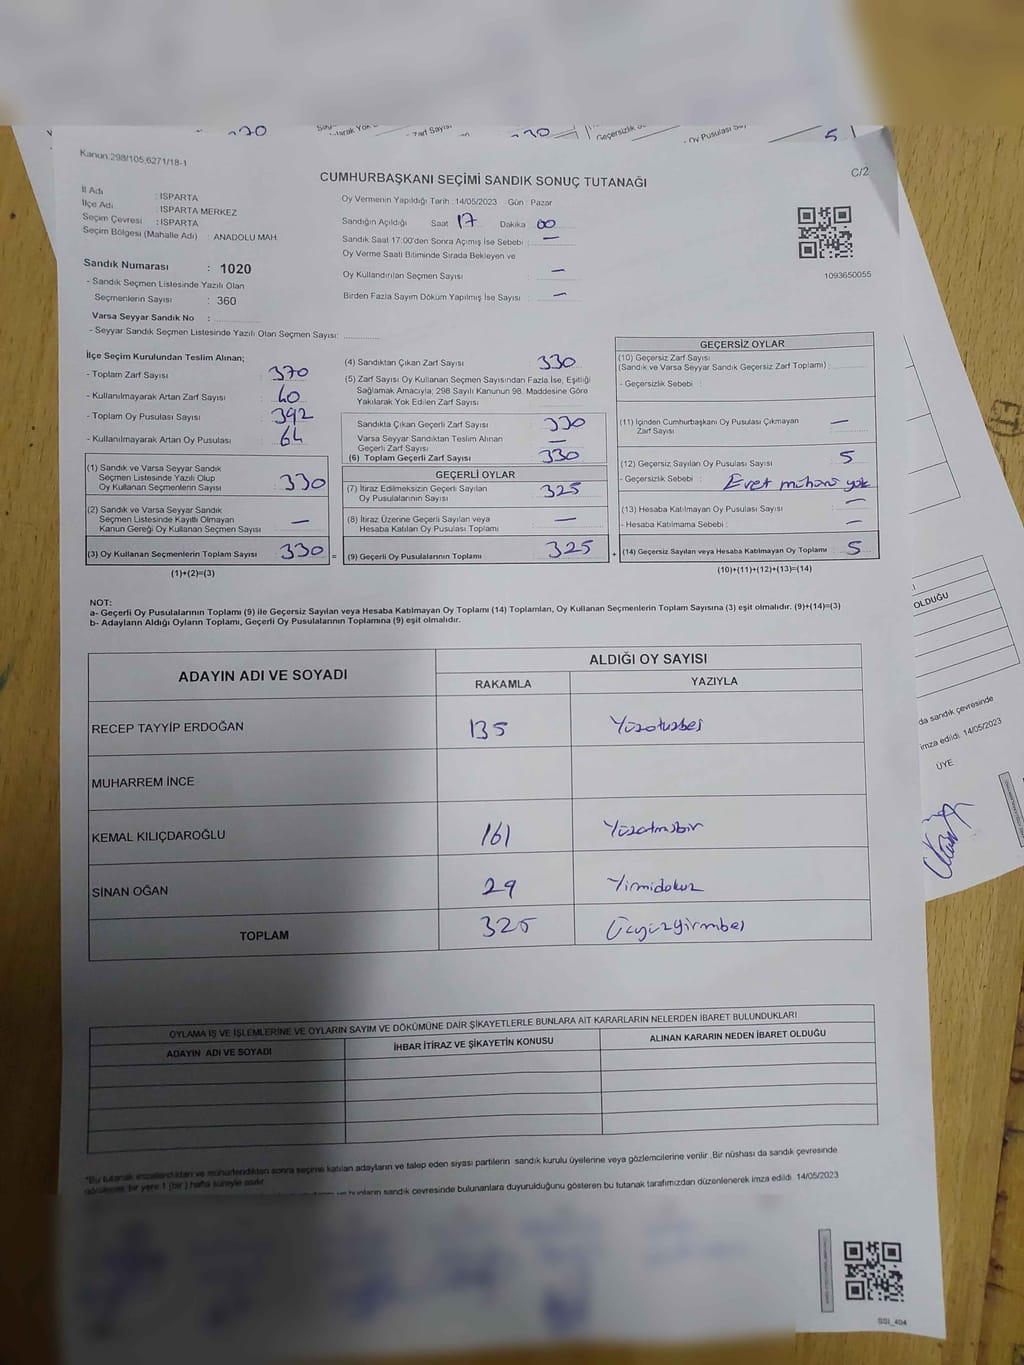 Kanun.298/105,6271/18-1
C/2
CUMHURBAŞKANI SEÇİMİ SANDIK SONUÇ TUTANAĞI
İl Adı : ISPARTA
İlçe Adı : ISPARTA MERKEZ
Seçim Çevresi : ISPARTA
Seçim Bölgesi (Mahalle Adı) : ANADOLU MAH.
Sandık Numarası : 1020
- Sandık Seçmen Listesinde Yazılı Olan
Seçmenlerin Sayısı : 360
Varsa Seyyar Sandık No :
- Seyyar Sandık Seçmen Listesinde Yazılı Olan Seçmen Sayısı:
Oy Vermenin Yapıldığı Tarih : 14/05/2023 Gün : Pazar
Sandığın Açıldığı Saat 17 Dakika 00
Sandık Saat 17:00'den Sonra Açımış İse Sebebi : —
Oy Verme Saati Bitiminde Sırada Bekleyen ve
Oy Kullandırılan Seçmen Sayısı : —
Birden Fazla Sayım Döküm Yapılmış İse Sayısı : —
1093650055
İlçe Seçim Kurulundan Teslim Alınan;
- Toplam Zarf Sayısı : 370
- Kullanılmayarak Artan Zarf Sayısı : 40
- Toplam Oy Pusulası Sayısı : 392
- Kullanılmayarak Artan Oy Pusulası : 64
(1) Sandık ve Varsa Seyyar Sandık
Seçmen Listesinde Yazılı Olup
Oy Kullanan Seçmenlerin Sayısı : 330
(2) Sandık ve Varsa Seyyar Sandık
Seçmen Listesinde Kayıtlı Olmayan
Kanun Gereği Oy Kullanan Seçmen Sayısı : —
(3) Oy Kullanan Seçmenlerin Toplam Sayısı : 330 =
(1)+(2)=(3)
(4) Sandıktan Çıkan Zarf Sayısı : 330
(5) Zarf Sayısı Oy Kullanan Seçmen Sayısından Fazla İse, Eşitliği
Sağlamak Amacıyla; 298 Sayılı Kanunun 98. Maddesine Göre
Yakılarak Yok Edilen Zarf Sayısı
Sandıkta Çıkan Geçerli Zarf Sayısı : 330
Varsa Seyyar Sandıktan Teslim Alınan
Geçerli Zarf Sayısı : —
(6) Toplam Geçerli Zarf Sayısı : 330
GEÇERLİ OYLAR
(7) İtiraz Edilmeksizin Geçerli Sayılan
Oy Pusulalarının Sayısı : 325
(8) İtiraz Üzerine Geçerli Sayılan veya
Hesaba Katılan Oy Pusulası Toplamı : —
(9) Geçerli Oy Pusulalarının Toplamı : 325 +
GEÇERSİZ OYLAR
(10) Geçersiz Zarf Sayısı
(Sandık ve Varsa Seyyar Sandık Geçersiz Zarf Toplamı) :
- Geçersizlik Sebebi :
(11) İçinden Cumhurbaşkanı Oy Pusulası Çıkmayan
Zarf Sayısı : —
(12) Geçersiz Sayılan Oy Pusulası Sayısı : 5
- Geçersizlik Sebebi : Evet mührü yok
(13) Hesaba Katılmayan Oy Pusulası Sayısı : —
- Hesaba Katılmama Sebebi : —
(14) Geçersiz Sayılan veya Hesaba Katılmayan Oy Toplamı : 5
(10)+(11)+(12)+(13)=(14)
NOT:
a- Geçerli Oy Pusulalarının Toplamı (9) ile Geçersiz Sayılan veya Hesaba Katılmayan Oy Toplamı (14) Toplamları, Oy Kullanan Seçmenlerin Toplam Sayısına (3) eşit olmalıdır. (9)+(14)=(3)
b- Adayların Aldığı Oyların Toplamı, Geçerli Oy Pusulalarının Toplamına (9) eşit olmalıdır.
ADAYIN ADI VE SOYADI ALDIĞI OY SAYISI
RAKAMLA YAZIYLA
RECEP TAYYİP ERDOĞAN 135 Yüzotuzbeş
MUHARREM İNCE
KEMAL KILIÇDAROĞLU 161 Yüzatmışbir
SİNAN OĞAN 29 Yirmidokuz
TOPLAM 325 Üçyüzyirmibeş
OYLAMA İŞ VE İŞLEMLERİNE VE OYLARIN SAYIM VE DÖKÜMÜNE DAİR ŞİKAYETLERLE BUNLARA AİT KARARLARIN NELERDEN İBARET BULUNDUKLARI
ADAYIN ADI VE SOYADI İHBAR İTİRAZ VE ŞİKAYETİN KONUSU ALINAN KARARIN NEDEN İBARET OLDUĞU
*Bu tutanak imzalandıktan ve mühürlendikten sonra seçime katılan adayların ve talep eden siyasi partilerin sandık kurulu üyelerine veya gözlemcilerine verilir. Bir nüshası da sandık çevresinde
görülecek bir yere 1 (bir) hafta süreyle asılır.
bunların sandık çevresinde bulunanlara duyurulduğunu gösteren bu tutanak tarafımızdan düzenlenerek imza edildi. 14/05/2023
SSI_404
OLDUĞU
da sandık çevresinde
imza edildi. 14/05/2023
ÜYE